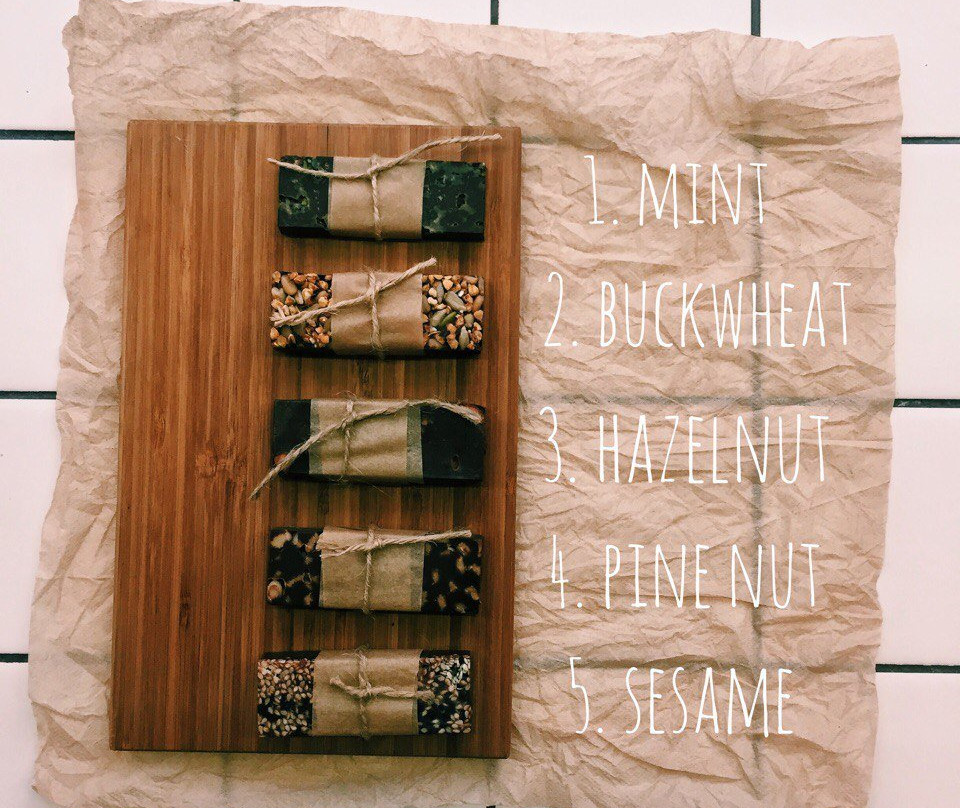 1. MINT
2. BUCKWHEAT
3. HAZELNUT
4. PINE NUT
5. SESAME